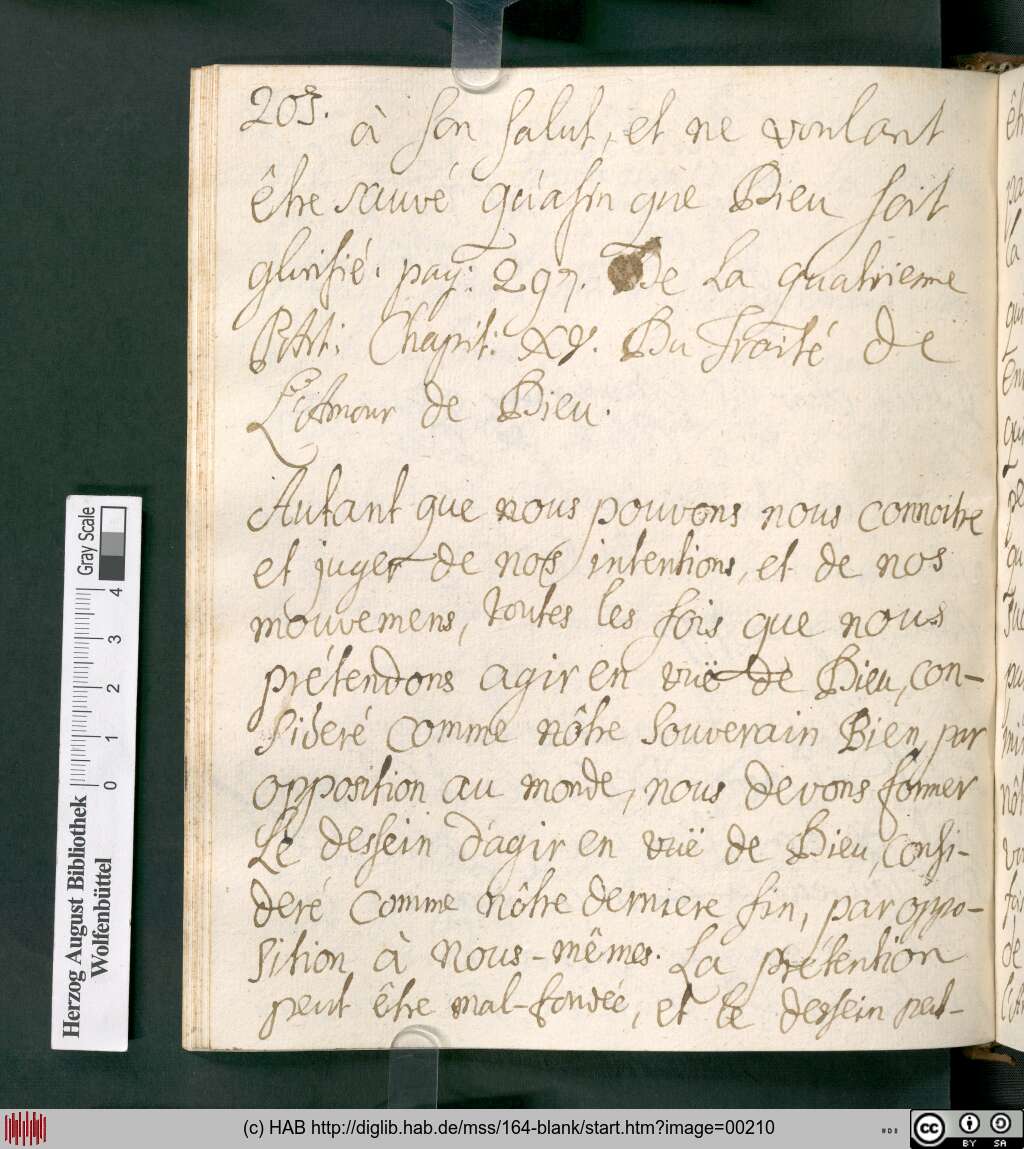 203.
à son salut, et ne voulant
être sauvé qu'afin que Dieu soit
glorifié. pag: 297. De La quatrieme
Part: Chapit: XV. Du Traité de
L'Amour de Dieu.
Autant que nous pouvons nous connoitre
et juger de nos intentions, et de nos
mouvemens, toutes les fois que nous
prétendons agir en vuë de Dieu, con-
sideré comme nôtre Souverain Bien, par
opposition au monde, nous devons former
Le dessein d'agir en vuë de Dieu, consi-
deré comme nôtre derniere fin, par oppo-
sition à nous-mêmes. La prétention
peut être mal-fondée, et le dessein peut-
Gray Scale
0 1 2 3 4
Herzog August Bibliothek
Wolfenbüttel
(c) HAB http://diglib.hab.de/mss/164-blank/start.htm?image=00210
cc BY SA